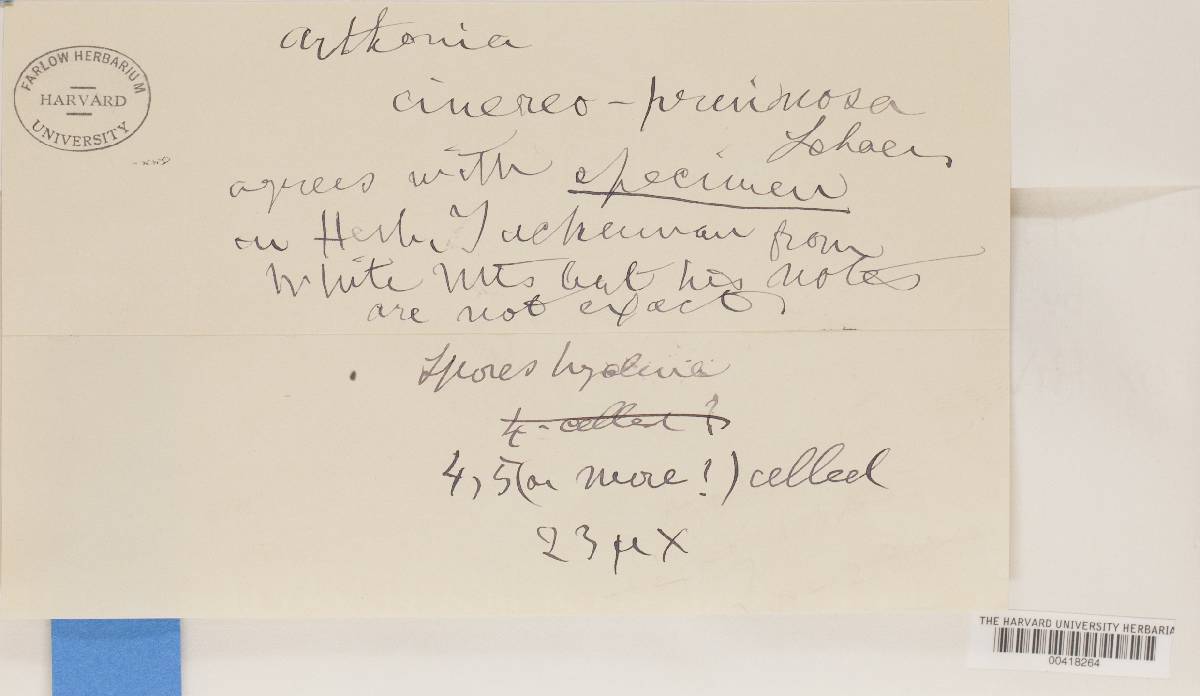 FARLOW HERBARIUM
HARVARD
UNIVERSITY
Arthonia
cinereo-pruinosa
Schaer.
agrees with specimen
in Herb. Tuckerman from
White Mts but his notes
are not exact.
Spores hyaline
4-celled ?
4, 5 (or more!) celled
23 µ X
THE HARVARD UNIVERSITY HERBARIA
00418264